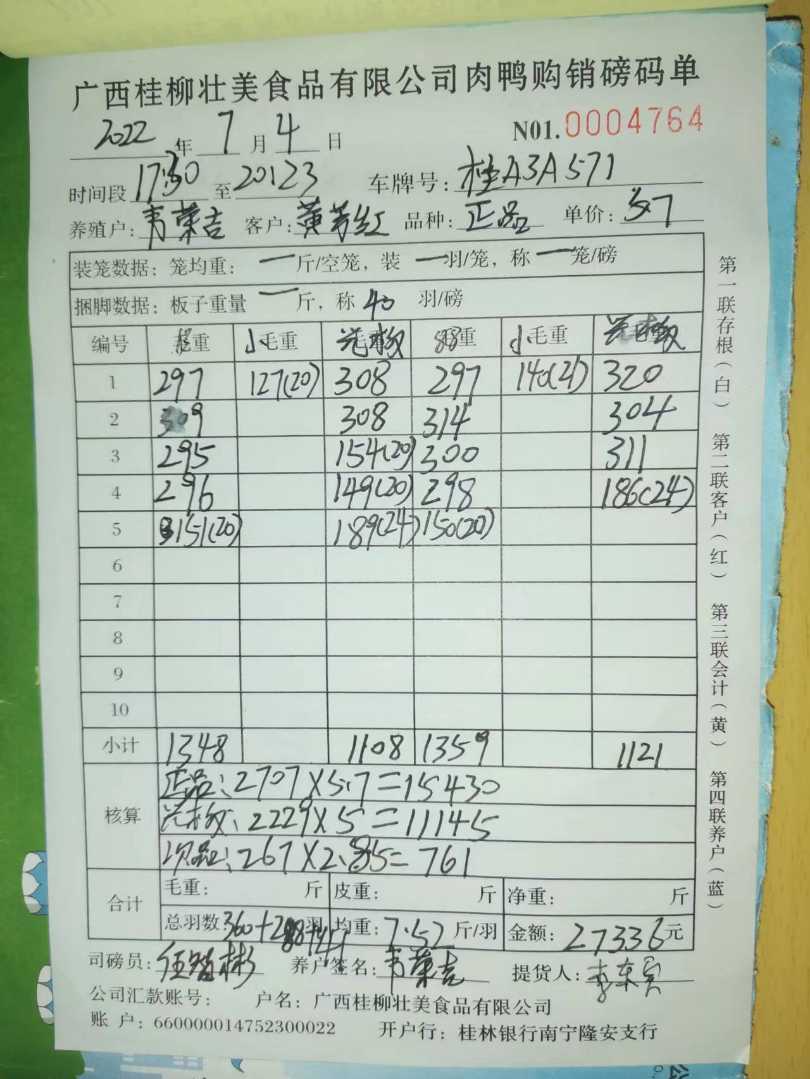 广西桂柳壮美食品有限公司肉鸭购销磅码单
2022 年 7 月 4 日 N01.0004764
时间段 17:30 至 20:23 车牌号: 桂A3A571
养殖户: 韦荣吉 客户: 黄芳红 品种: 正品 单价: 5.7
装笼数据: 笼均重: 一 斤/空笼, 装 一 羽/笼, 称 一 笼/磅
捆脚数据: 板子重量 一 斤, 称 40 羽/磅
编号 重 小毛重 重 小毛重
1 297 127(20) 308 297 140(21) 320
2 309 308 314 304
3 295 154(20) 300 311
4 296 149(20) 298 186(24)
5 151(20) 189(24) 150(20)
6
7
8
9
10
小计 1348 1108 1359 1121
核算 正品: 2707×5.7=15430
2229×5=11145
次品: 267×2.85=761
合计 毛重: 斤 皮重: 斤 净重: 斤
总羽数 360+288+41 羽 均重: 7.52 斤/羽 金额: 27336元
司磅员: 养户签名: 韦荣吉 提货人:
公司汇款账号: 户名: 广西桂柳壮美食品有限公司
账 户: 660000014752300022 开户行: 桂林银行南宁隆安支行
第一联存根(白) 第二联客户(红) 第三联会计(黄) 第四联养户(蓝)